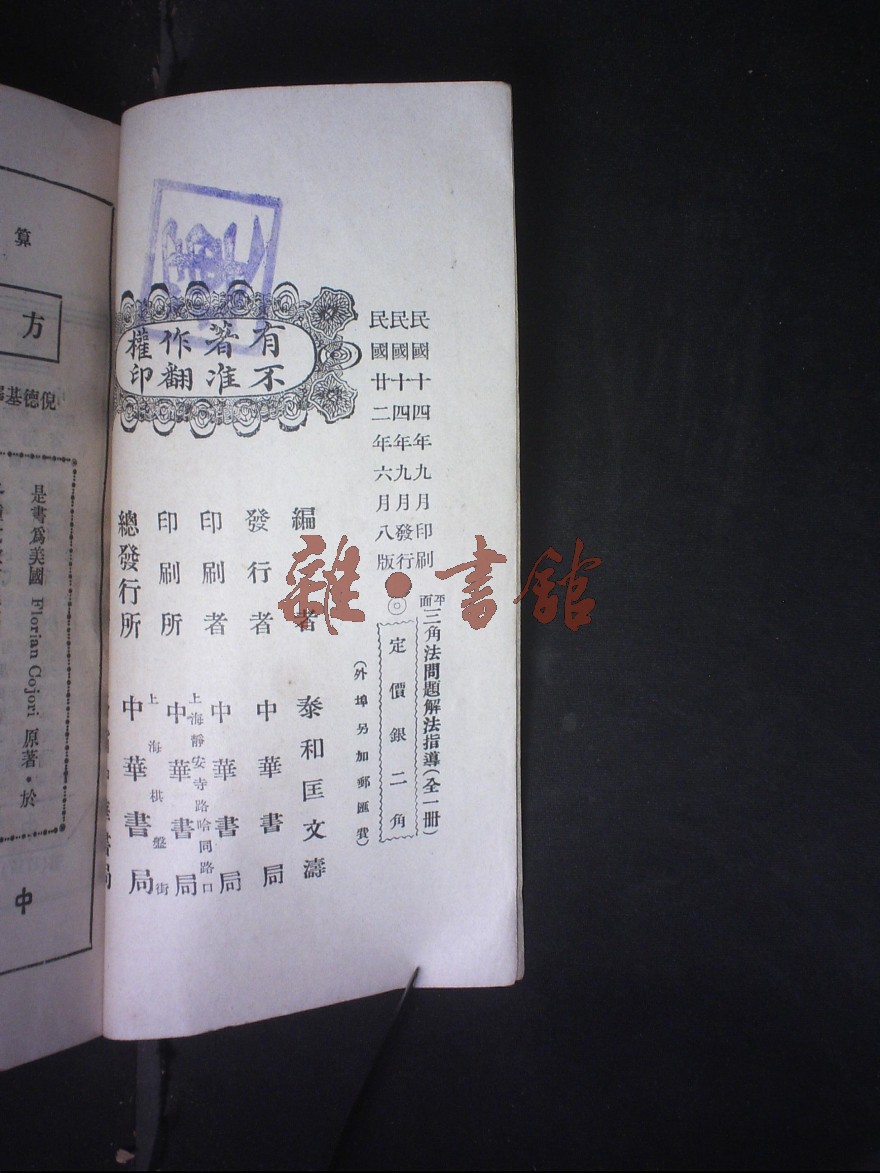 民國十四年九月印刷
民國十四年九月發行
民國廿二年六月八版
平面三角法問題解法指導(全一冊)
◎定價銀二角
(外埠另加郵匯費)
有著作權
不准翻印
編者 泰和匡文濤
發行者 中華書局
印刷者 中華書局
上海靜安寺路哈同路口
印刷所 中華書局
上海棋盤街
總發行所 中華書局
雜·書館
算
方
倪德基
是書爲美國 Florian Cojori 原著·於
中